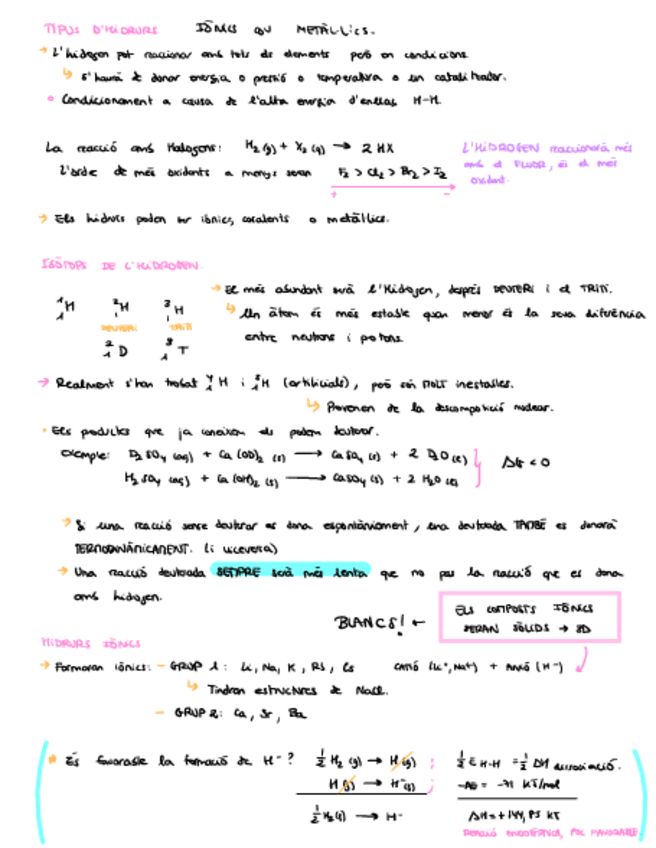 TIPUS D'HIDRURS IÒNICS OU METÀL·LICS.
→ L'hidrogen pot reaccionar amb tots els elements però en condicions
↳ s'haurà de donar energia o pressió o temperatura o un catalitzador.
• Condicionament a causa de l'alta energia d'enllaç H-H.
La reacció amb Halogens: H₂(g) + X₂(g) → 2 HX
L'ordre de més oxidants a menys seran F₂ > Cl₂ > Br₂ > I₂
+ -
L'HIDROGEN reaccionarà més
amb el FLUOR, és el més
oxidant.
→ Els hidrurs poden ser iònics, covalents o metàl·lics.
ISÒTOPS DE L'HIDROGEN.
¹₁H ²₁H ³₁H
DEUTERI TRITI
²₁D ³₁T
→ El més abundant serà l'Hidrogen, després DEUTERI i el TRITI.
↳ Un àtom és més estable quan menor és la seva diferència
entre neutrons i protons.
→ Realment s'han trobat ⁴H i ⁵H (artificials), però són MOLT inestables.
↳ Provenen de la descomposició nuclear.
• Els productes que ja coneixem els podem deuterar.
exemple: D₂SO₄ (aq) + Ca(OD)₂ (s) → CaSO₄ (s) + 2 D₂O (l)
H₂SO₄ (aq) + Ca(OH)₂ (s) → CaSO₄ (s) + 2 H₂O (l)
ΔG < 0
→ Si una reacció sense deuterar es dona espontàniament, una deuterada TAMBÉ es donarà
TERMODINÀMICAMENT. (i viceversa)
→ Una reacció deuterada SEMPRE serà més lenta que no pas la reacció que es dona
amb hidrogen.
BLANCS! ←
ELS COMPOSTS IÒNICS
SERAN SÒLIDS → 3D
HIDRURS IÒNICS
→ Formaran iònics: - GRUP 1: Li, Na, K, Rb, Cs CATIÓ (Li⁺, Na⁺) + ANIÓ (H⁻)
↳ Tindran estructures de NaCl.
- GRUP 2: Ca, Sr, Ba
* És favorable la formació de H⁻? ½ H₂ (g) → H(g) ; ½ E H-H = ½ ΔH dissociació.
H(g) → H⁻(g) ; -AE = -71 KJ/mol
½ H₂(g) → H⁻ ΔH = +144,85 KJ
REACCIÓ ENDOTÈRMICA, POC FAVORABLE.